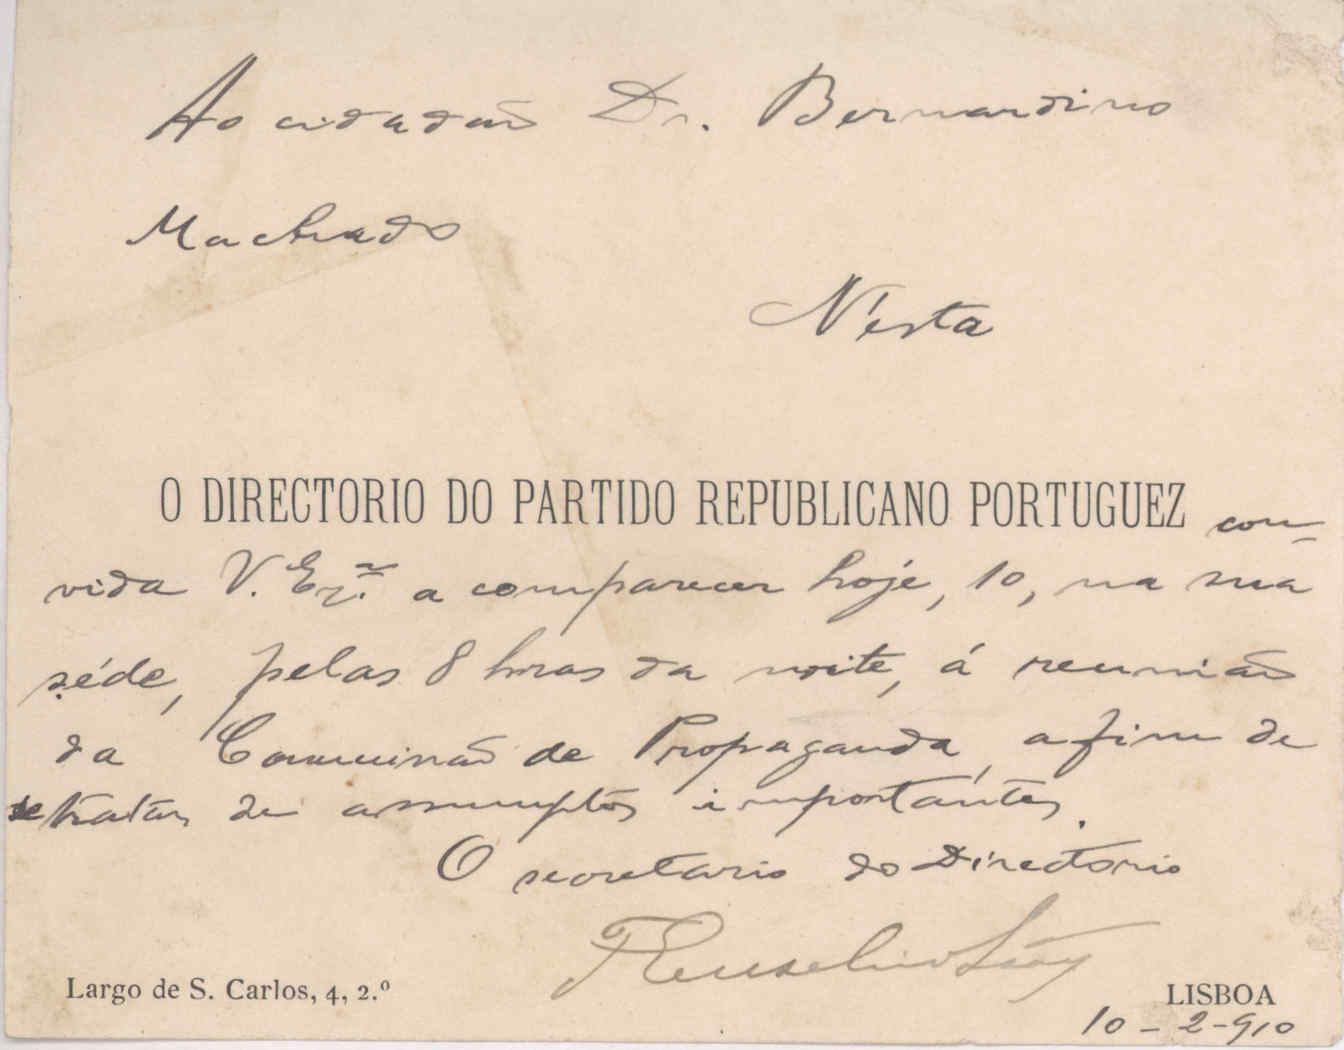 Ao cidadão Dr. Bernardino
Machado
N'esta
O DIRECTORIO DO PARTIDO REPUBLICANO PORTUGUEZ con-
vida V. Ex.ª a comparecer hoje, 10, na sua
séde, pelas 8 horas da noite, á reunião
da Commissão de Propaganda, afim de
se tratar de assumptos importantes.
O secretario do Directorio
Eusebio Leão
Largo de S. Carlos, 4, 2.º
LISBOA
10-2-910